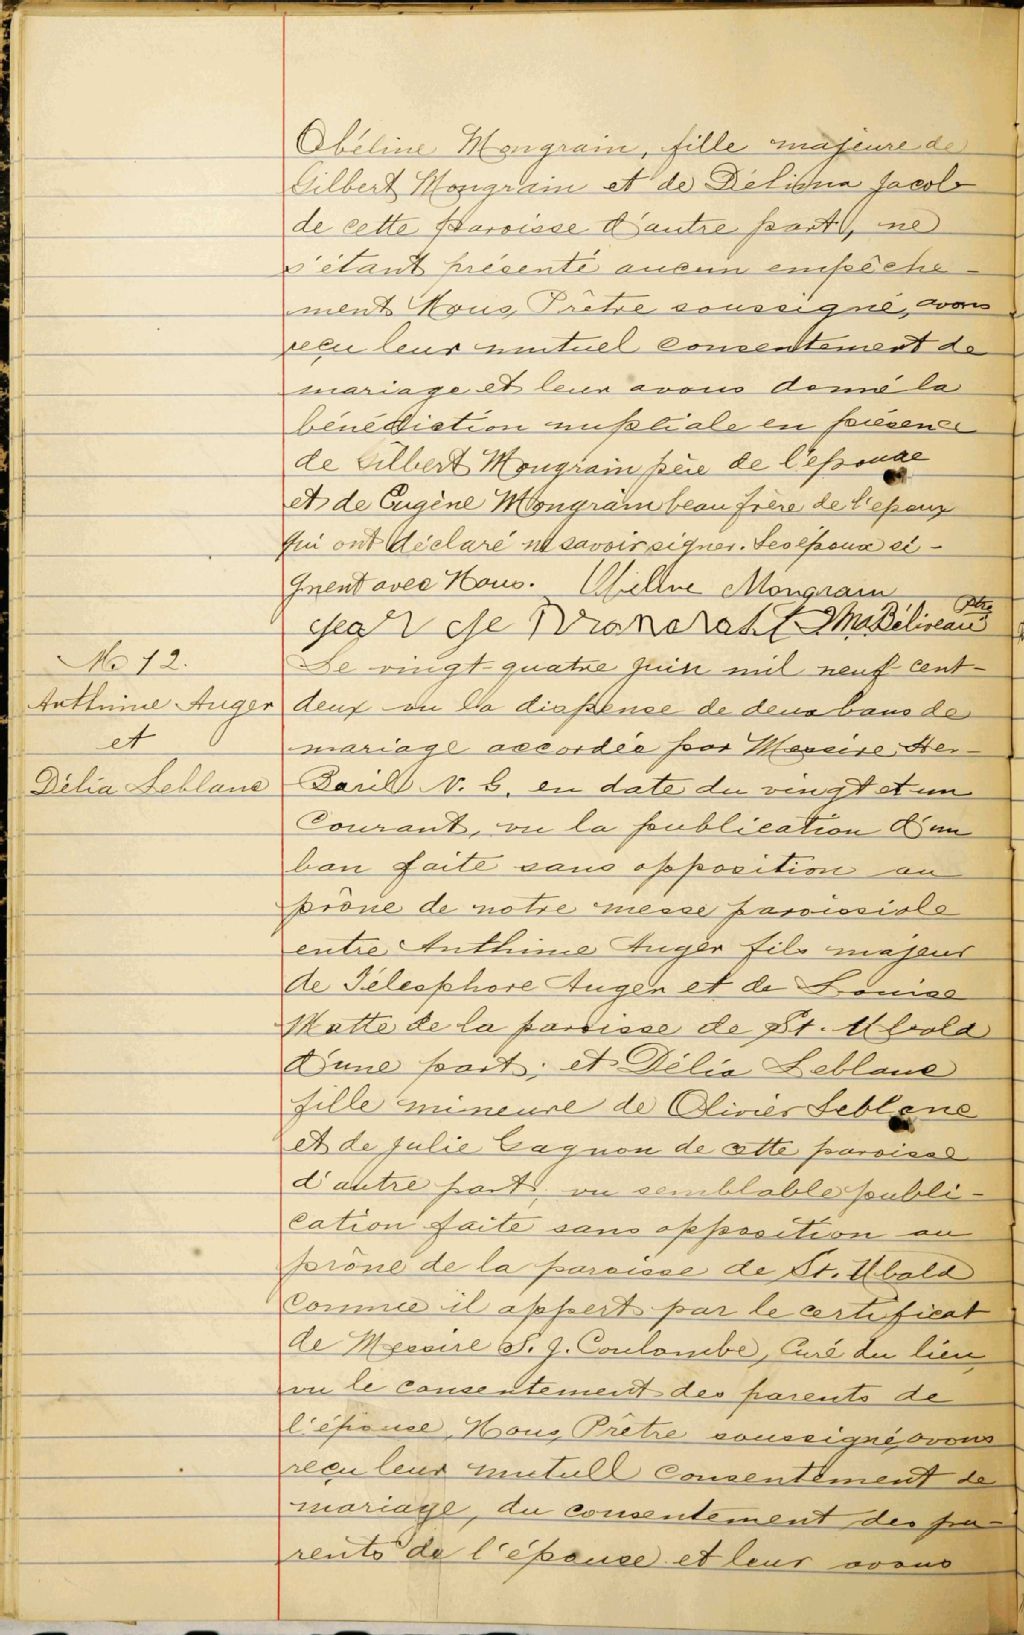 Obéline Mongrain, fille majeure de
Gilbert Mongrain et de Délima Jacob
de cette paroisse d'autre part, ne
s'étant présenté aucun empêche-
ment Nous, Prêtre soussigné, avons
reçu leur mutuel consentement de
mariage et leur avons donné la
bénédiction nuptiale en présence
de Gilbert Mongrain père de l'épouse
et de Eugène Mongrain beau frère de l'epoux
qui ont déclaré ne savoir signer. Les époux si-
gnent avec Nous. Mongrain
Béliveau Ptre
No 12.
Anthime Auger
et
Délia Leblanc
Le vingt-quatre juin mil neuf-cent-
deux vu la dispense de deux bans de
mariage accordée par Messire Her-
Baril V. G. en date du vingt et un
Courant, vu la publication d'un
ban faite sans opposition au
prône de notre messe paroissiale
entre Anthime Auger fils majeur
de Télesphore Auger et de Louise
Matte de la paroisse de St. Ubald
d'une part; et Délia Leblanc
fille mineure de Olivier Leblanc
et de Julie Gagnon de cette paroisse
d'autre part; vu semblable publi-
cation faite sans opposition au
prône de la paroisse de St. Ubald
comme il appert par le certificat
de Messire S. J. Coulombe, Curé du lieu,
vu le consentement des parents de
l'épouse, Nous, Prêtre soussigné, avons
reçu leur mutuell consentement de
mariage, du consentement des pa-
rents de l'épouse et leur avons